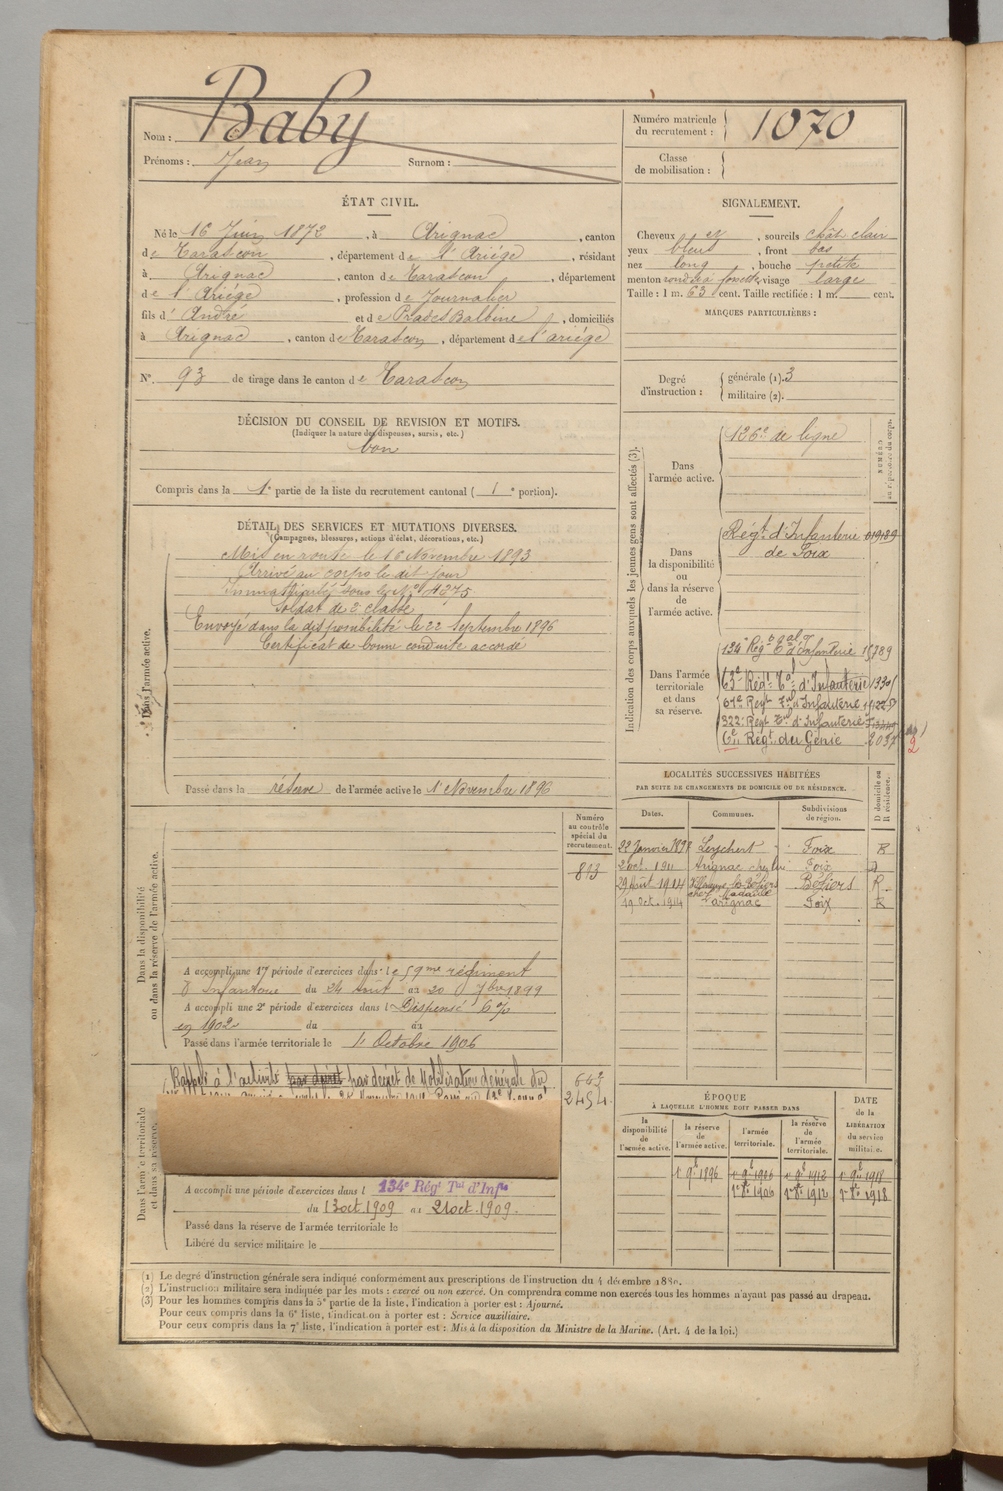 Nom : Baby
Prénoms : Jean Surnom :
Numéro matricule du recrutement : 1070
Classe de mobilisation :
ÉTAT CIVIL.
Né le 16 Juin 1872, à Arignac, canton
de Tarascon, département de l'Ariége, résidant
à Arignac, canton de Tarascon, département
de l'Ariége, profession de Journalier
fils d'André et de Prades Balbine, domiciliés
à Arignac, canton de Tarascon, département de l'ariége
N° 93 de tirage dans le canton de Tarascon
SIGNALEMENT.
Cheveux, sourcils chât clair
yeux bleus, front bas
nez long, bouche petite
menton rond à fossette, visage large
Taille : 1 m. 63 cent. Taille rectifiée : 1 m. cent.
MARQUES PARTICULIÈRES :
Degré d'instruction : générale (1). 3
militaire (2).
DÉCISION DU CONSEIL DE REVISION ET MOTIFS.
(Indiquer la nature des dispenses, sursis, etc.)
bon
Compris dans la 1e partie de la liste du recrutement cantonal ( 1e portion).
DÉTAIL DES SERVICES ET MUTATIONS DIVERSES.
(Campagnes, blessures, actions d'éclat, décorations, etc.)
Dans l'armée active.
Mis en route le 16 Novembre 1893
Arrivé au corps le dit jour
Immatriculé sous le N° 4275
Soldat de 2e classe
Envoyé dans la disponibilité le 22 Septembre 1896
Certificat de bonne conduite accordé
Passé dans la réserve de l'armée active le 1r Novembre 1896
Indication des corps auxquels les jeunes gens sont affectés (3).
NUMÉRO
au répertoire du corps.
Dans l'armée active.
126e de ligne
Dans la disponibilité ou dans la réserve de l'armée active.
Régt d'Infanterie 019189
de Foix
Dans l'armée territoriale et dans sa réserve.
134e Régt d'Infanterie 15789
63e Régt Tal d'Infanterie
67e Regt Tal d'Infanterie
322e Régt Tal d'Infanterie
6e Régt du Génie
2
LOCALITÉS SUCCESSIVES HABITÉES
PAR SUITE DE CHANGEMENTS DE DOMICILE OU DE RÉSIDENCE.
Dates. Communes. Subdivisions de région. D domicile ou R résidence.
22 Janvier 1898 Leychert Foix R
2 oct. 1911 Arignac chez lui Foix D
29 Août 1914 Villeneuve les Béziers Béziers R
19 Oct. 1914 arignac Foix R
Numéro au contrôle spécial du recrutement.
803
Dans la disponibilité
ou dans la réserve de l'armée active.
A accompli une 1re période d'exercices dans le 59me régiment
d'Infanterie du 24 Août au 20 7bre 1899
A accompli une 2e période d'exercices dans l Dispensé 6%
en 1902 du au
Passé dans l'armée territoriale le 1r Octobre 1906
Dans l'armée territoriale
et dans sa réserve.
Rappelé à l'activité par décret par decrét de Mobilisation Générale du
643
2454
A accompli une période d'exercices dans l 134e Régt Tal d'Infie
du 13 oct. 1909 au 21 oct. 1909.
Passé dans la réserve de l'armée territoriale le
Libéré du service militaire le
ÉPOQUE
À LAQUELLE L'HOMME DOIT PASSER DANS
DATE de la LIBÉRATION du service militaire.
la disponibilité de l'armée active. la réserve de l'armée active. l'armée territoriale. la réserve de l'armée territoriale.
1r 9bre 1896 1r 9bre 1906 1r 9bre 1912 1r 9bre 1918
1er 8bre 1906 1er 8bre 1912 1er 8bre 1918
(1) Le degré d'instruction générale sera indiqué conformément aux prescriptions de l'instruction du 4 décembre 1889.
(2) L'instruction militaire sera indiquée par les mots : exercé ou non exercé. On comprendra comme non exercés tous les hommes n'ayant pas passé au drapeau.
(3) Pour les hommes compris dans la 5e partie de la liste, l'indication à porter est : Ajourné.
Pour ceux compris dans la 6e liste, l'indication à porter est : Service auxiliaire.
Pour ceux compris dans la 7e liste, l'indication à porter est : Mis à la disposition du Ministre de la Marine. (Art. 4 de la loi.)